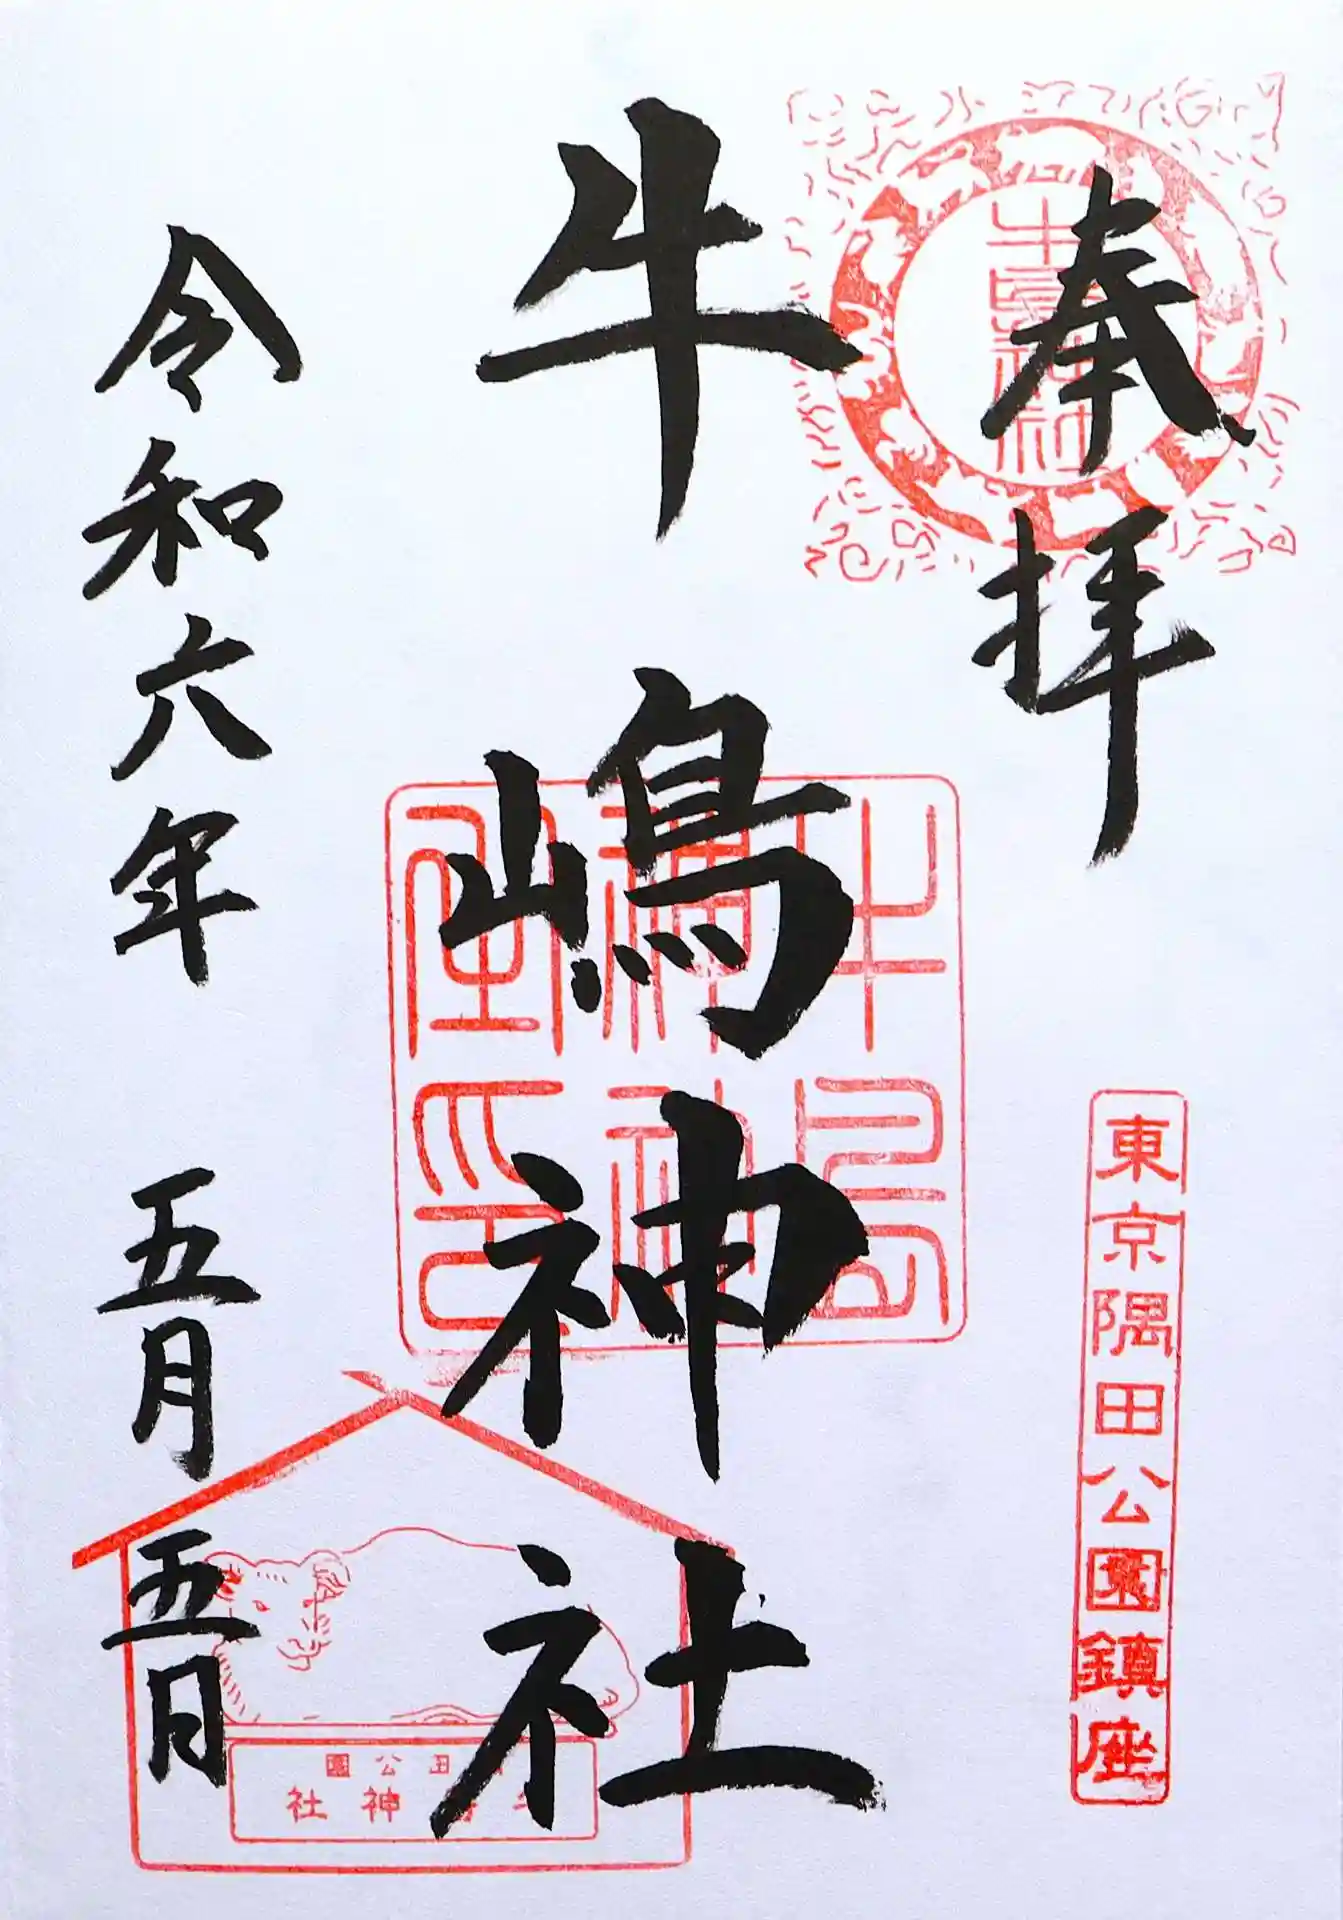 奉拝
牛島神社
東京隅田公園鎮座
牛嶋神社
牛島
神社印
令和六年 五月五日
田公園
神社